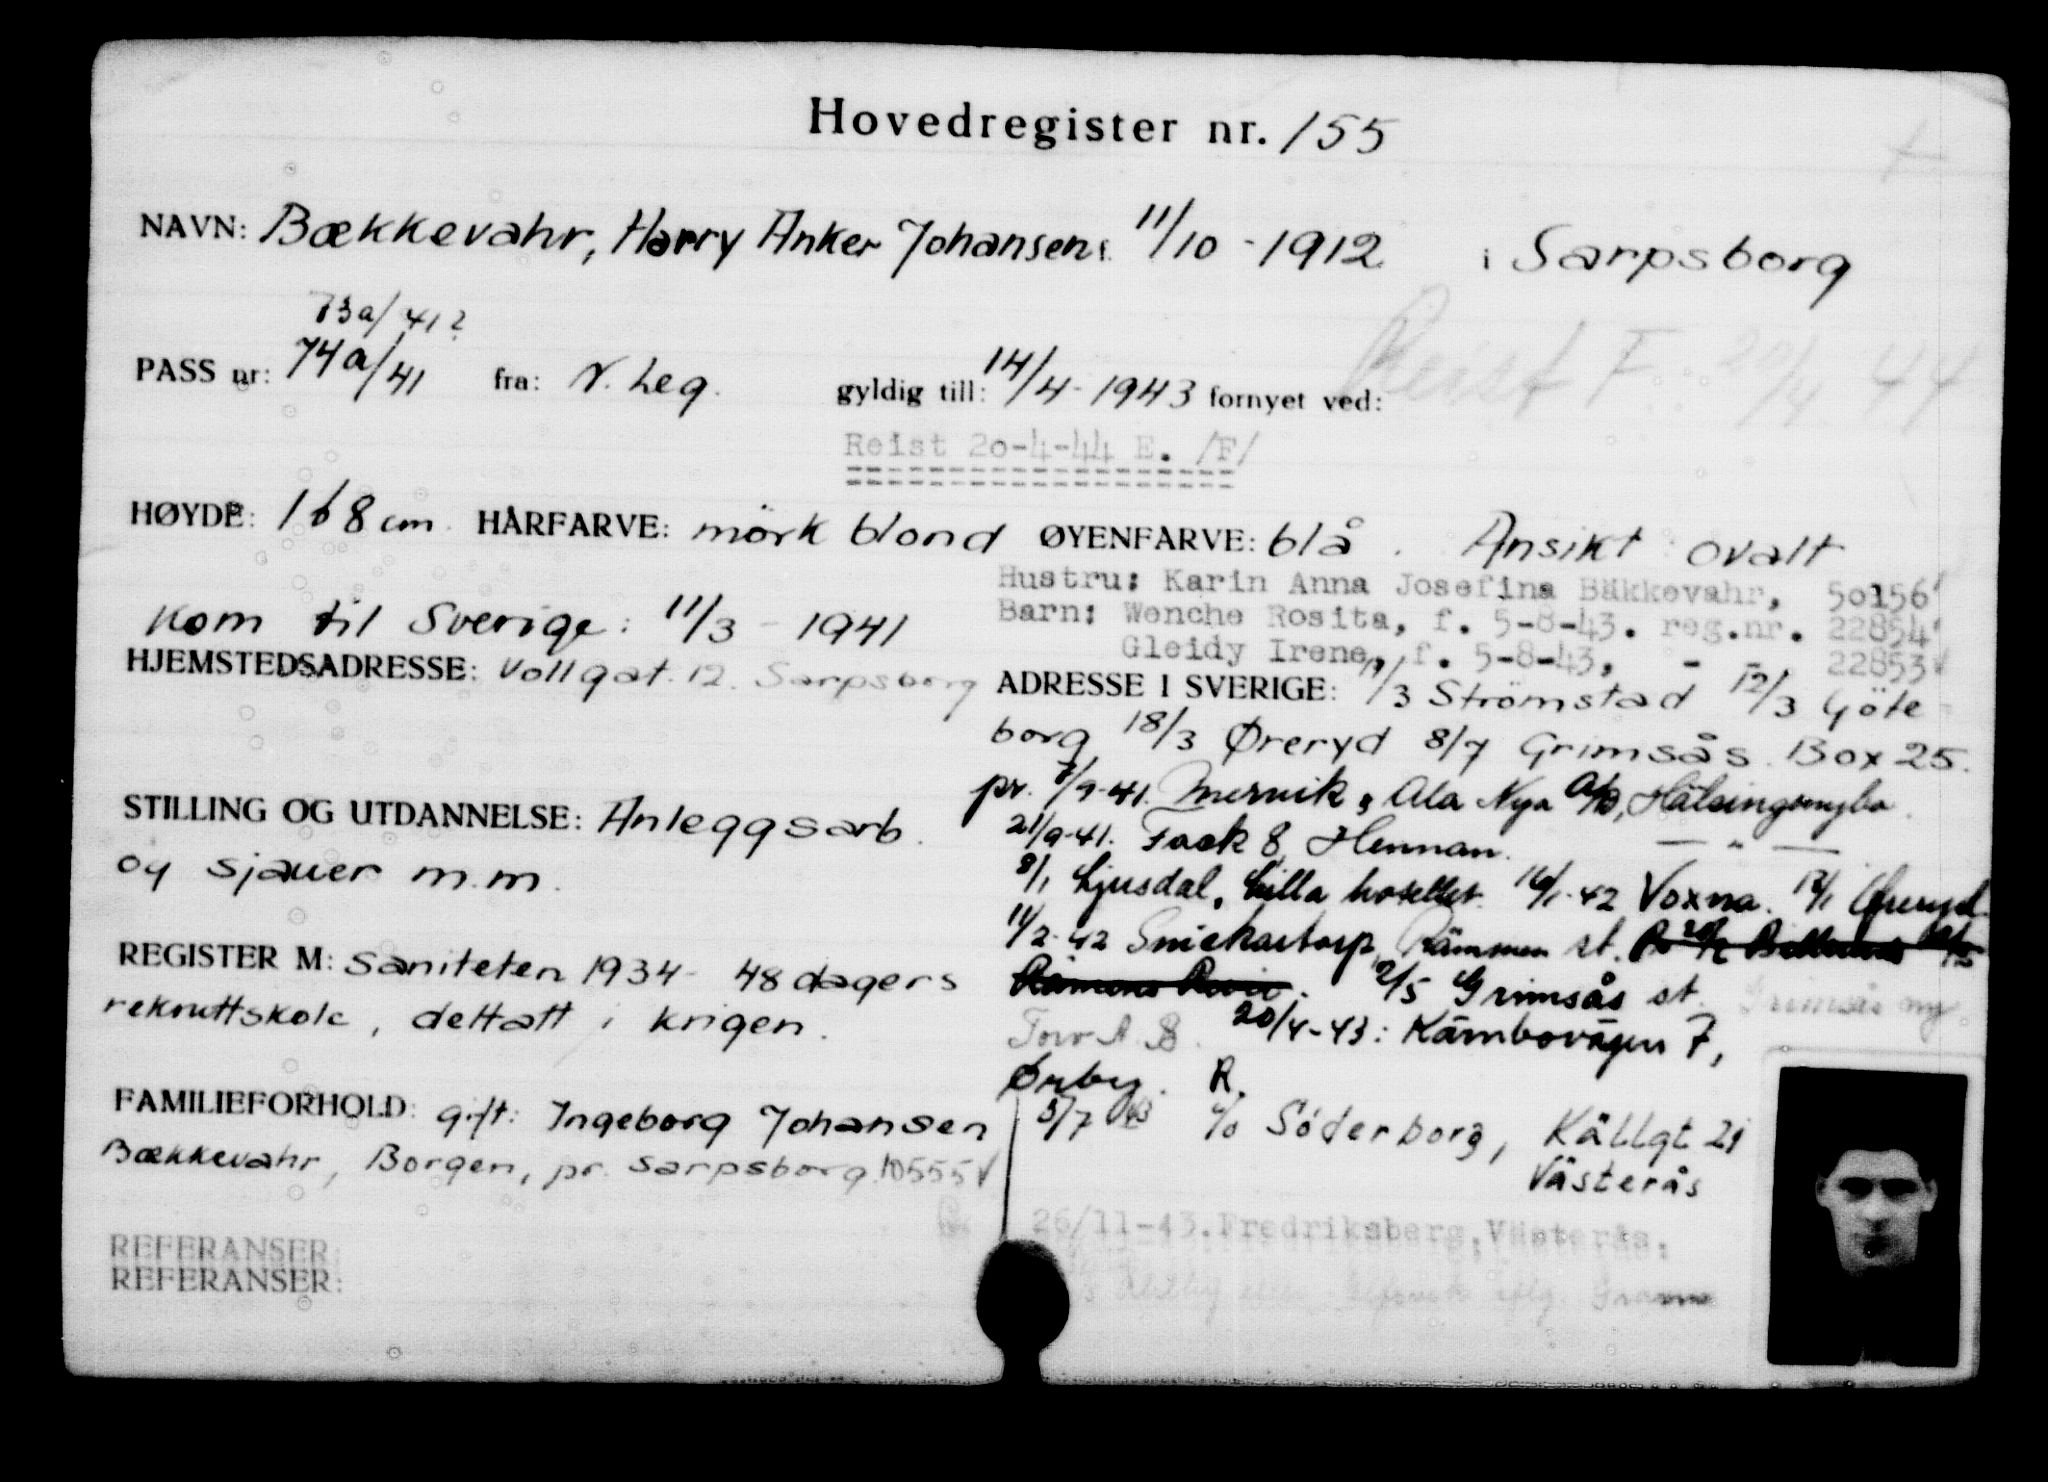 Hovedregister nr. 155
NAVN: Bækkevahr, Harry Anker Johansen f. 11/10 - 1912 i Sarpsborg
73a/41?
PASS nr: 74a/41 fra: N. Leg. gyldig till: 14/4 - 1943 fornyet ved:
Reist F. 20/4 44
Reist 20-4-44 E. /F/
HØYDE: 168 cm HÅRFARVE: mörk blond ØYENFARVE: blå. Ansikt ovalt
Hustru: Karin Anna Josefina Bäkkevahr, 50156
Kom til Sverige: 11/3 - 1941
Barn: Wenche Rosita, f. 5-8-43. reg.nr. 22854
Gleidy Irene, f. 5-8-43, - " - 22853
HJEMSTEDSADRESSE: Vollgat. 12. Sarpsborg
ADRESSE I SVERIGE: 11/3 Strömstad 12/3 Göte-
borg 18/3 Øreryd 8/7 Grimsås Box 25.
pr. 7/9-41. Ala Nya A/B,
STILLING OG UTDANNELSE: Anleggsarb.
og sjauer m.m.
21/9-41. Fack 8 Hennan. — " —
8/1 Ljusdal, Lilla hotellet. 16/1-42 Voxna. 17/1 Öreryd.
11/2-42 Snickartorp, Rämmen st.
REGISTER M: Saniteten 1934 - 48 dagers
rekruttskole, deltatt i krigen.
2/5 Grimsås st. Grimsås
20/4-43: Kämbovägen 7,
Örby. R.
FAMILIEFORHOLD: gift: Ingeborg Johansen
Bækkevahr, Borgen, pr. Sarpsborg. 10555
5/7 43 c/o Söderborg, Källgt 21
Västerås
26/11-43. Fredriksberg, Västerås.
REFERANSER:
REFERANSER: